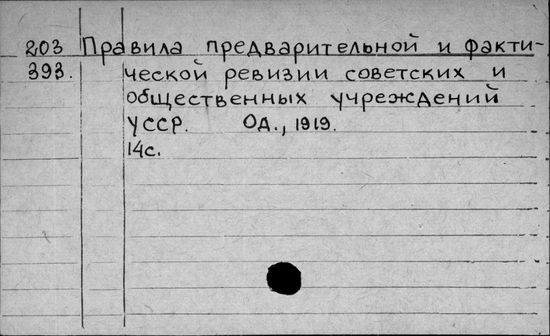 203 Правила предварительной и факти-
393. ческой ревизии советских и
общественных учреждений
УССР. Од., 1919.
14с.